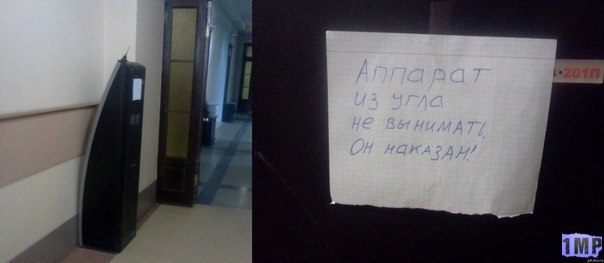 Аппарат
из угла
не вынимать,
Он наказан!
201П
1MP